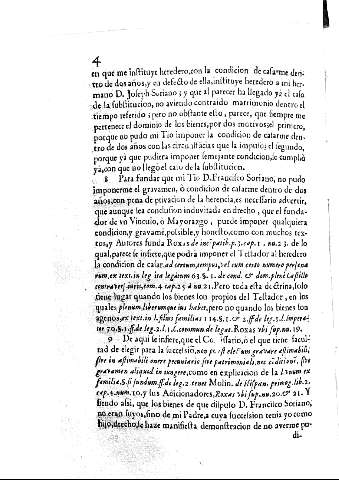 4
en que me instituye heredero, con la condicion de casarme den-
tro de dos años, y en defecto de ella, instituye heredero a mi her-
mano D. Joseph Soriano; y que al parecer ha llegado yà el caso
de la substitucion, no aviendo contraìdo matrimonio dentro el
tiempo referido; pero no obstante ello, parece, que siempre me
pertenece el dominio de los bienes, por dos motivos: el primero,
porque no pudo mi Tio imponer la condicion de casarme den-
tro de dos años con las circunstancias que la impuso; el segundo,
porque yà que pudiera imponer semejante condicion, le cumplió
yà, con que no llegó el caso de la substitucion.
8 Para fundar que mi Tio D. Francisco Soriano, no pudo
imponerme el gravamen, ò condicion de casarme dentro de dos
años, con pena de privacion de la herencia, es necessario advertir,
que aunque sea conclusion indubitada en drecho, que el funda-
dor de vn Vinculo, ò Mayorazgo, puede imponer qualquiera
condicion, y gravamē, possible, y honesto, como con muchos tex-
tos, y Autores funda Roxas de incompatib. p. 3. cap. 1. no. 23. de lo
qual, parece se infiere, que podrà imponer el Testador al heredero
la condicion de casar, ad certum tempus, vel cum certo numero persona
rum, ex text. in leg. ita legatum 63. §. 1. de cond. & dem. plenè Castillo
controvers. juris, tom. 4. cap. 25. à no. 21. Pero toda esta doctrina, solo
tiene lugar quando los bienes son propios del Testador, en los
quales plenum liberumque ius habet, pero no quando los bienes son
agenos, ex text. in l. filius familias 114. §. 1. & 2. ff. de leg. 1. l. impera-
tor 70. §. 1. ff. de leg. 2. l. 1. C. communia de legat. Roxas vbi sup. no. 19.
9 De aqui se infiere, que el Comissario, ò el que tiene facul-
tad de elegir para la succession,
gravamen aliquid in iungere, como en explicacion de la l. vnum ex
familia, §. si fundum. ff. de leg. 2. tenet Molin. de Hispan. primog. lib. 2.
cap. 4. num. 10. y sus Adicionadores, Roxas vbi sup. no. 20. & 21. Y
siendo assi, que los bienes de que dispuso D. Francisco Soriano,
no eran suyos, sino de mi Padre, a cuya succession tenia yo como
hijo, drecho, se haze manifiesta demonstracion de no averme po-
di-